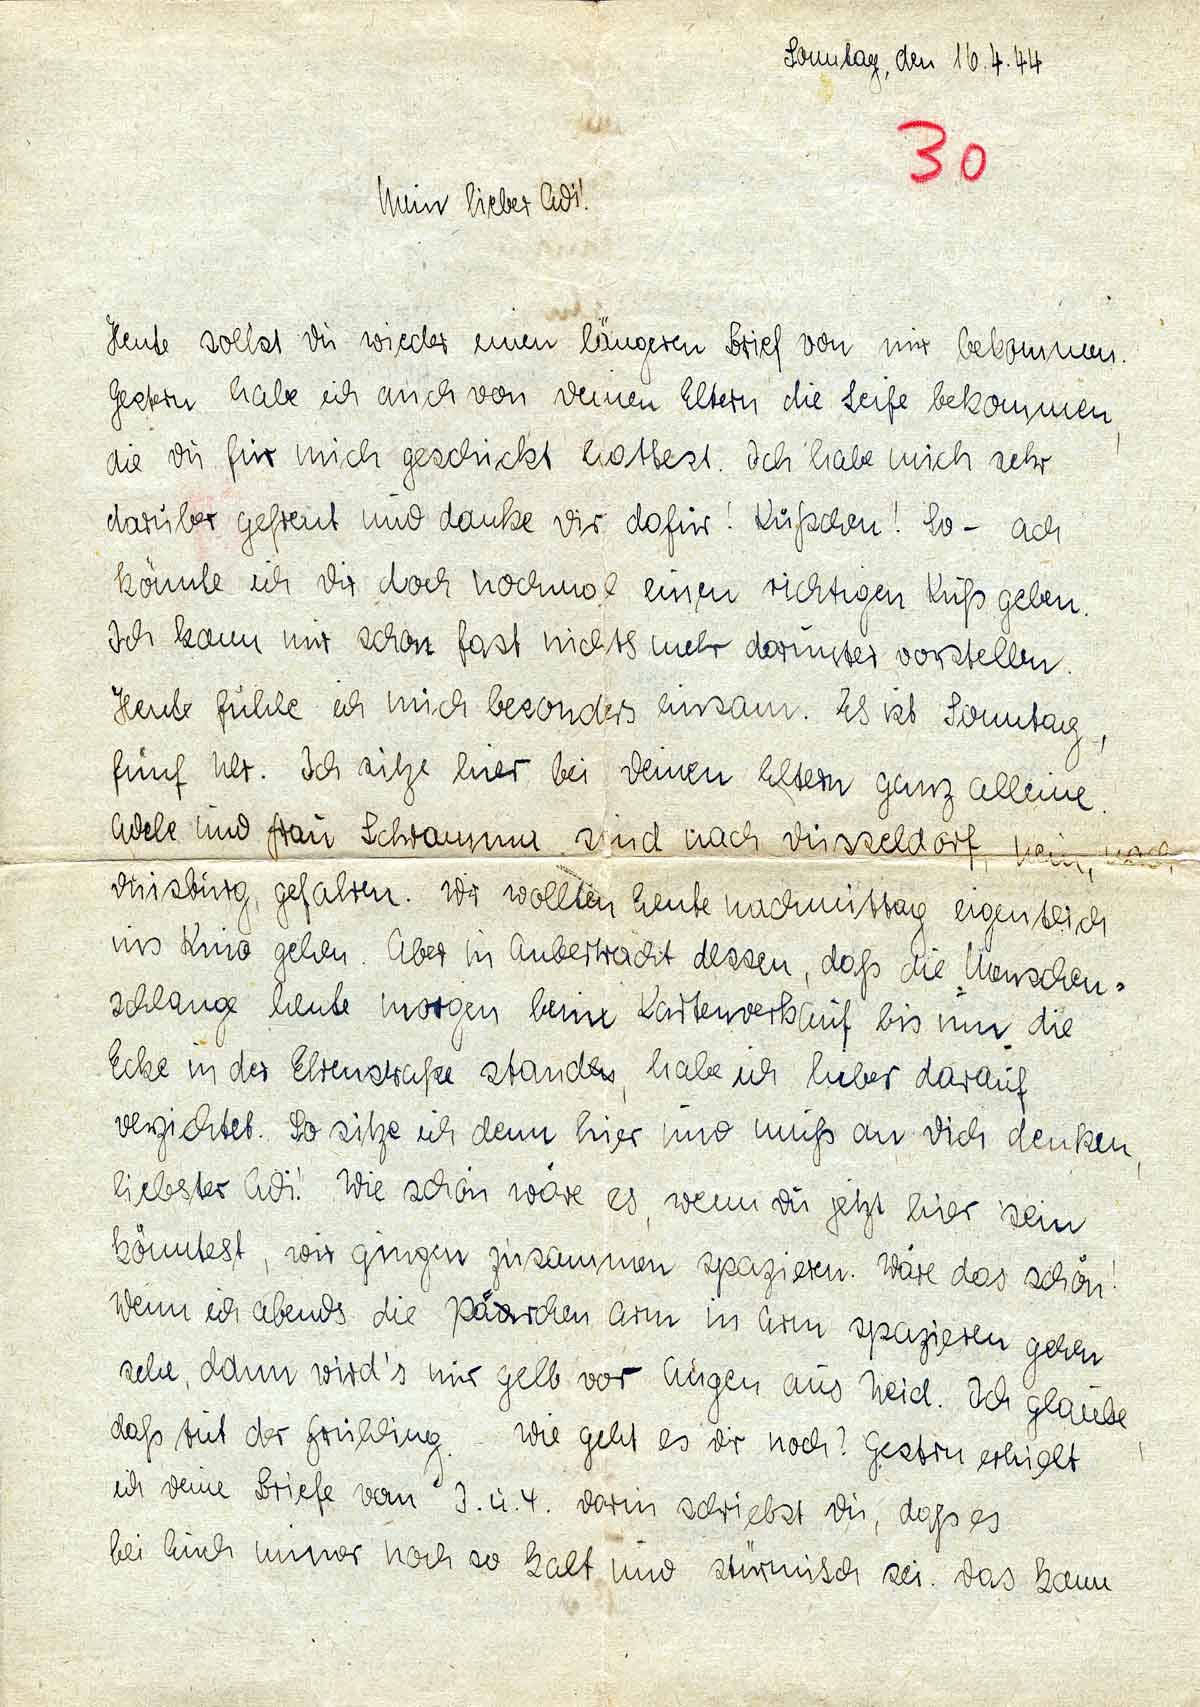 Sonntag, den 16.4.44
30
Mein lieber Adi!
Heute sollst Du wieder einen längeren Brief von mir bekommen.
Gestern habe ich auch von Deinen Eltern die Seife bekommen,
die Du für mich geschickt hattest. Ich habe mich sehr
darüber gefreut und danke Dir dafür! Küßchen! So – ach
könnte ich Dir doch nochmal einen richtigen Kuß geben.
Ich kann mir schon fast nichts mehr darunter vorstellen.
Heute fühle ich mich besonders einsam. Es ist Sonntag,
fünf Uhr. Ich sitze hier bei Deinen Eltern ganz alleine.
Adele und Frau Schramm sind nach Düsseldorf, nein, nach
Duisburg, gefahren. Wir wollten heute nachmittag eigentlich
ins Kino gehen. Aber in Anbetracht dessen, daß die Menschen-
schlange heute morgen beim Kartenverkauf bis um die
Ecke in der Ehrenstraße standen, habe ich lieber darauf
verzichtet. So sitze ich denn hier und muß an Dich denken,
liebster Adi! Wie schön wäre es, wenn Du jetzt hier sein
könntest, wir gingen zusammen spazieren. Wäre das schön!
Wenn ich abends die Päärchen Arm in Arm spazieren gehen
sehe, dann wird's mir gelb vor Augen aus Neid. Ich glaube,
daß tut der Frühling. Wie geht es Dir noch? Gestern erhielt
ich Deine Briefe vom 3. u. 4. Darin schriebst Du, daß es
bei Euch immer noch so kalt und stürmisch sei. Das kann